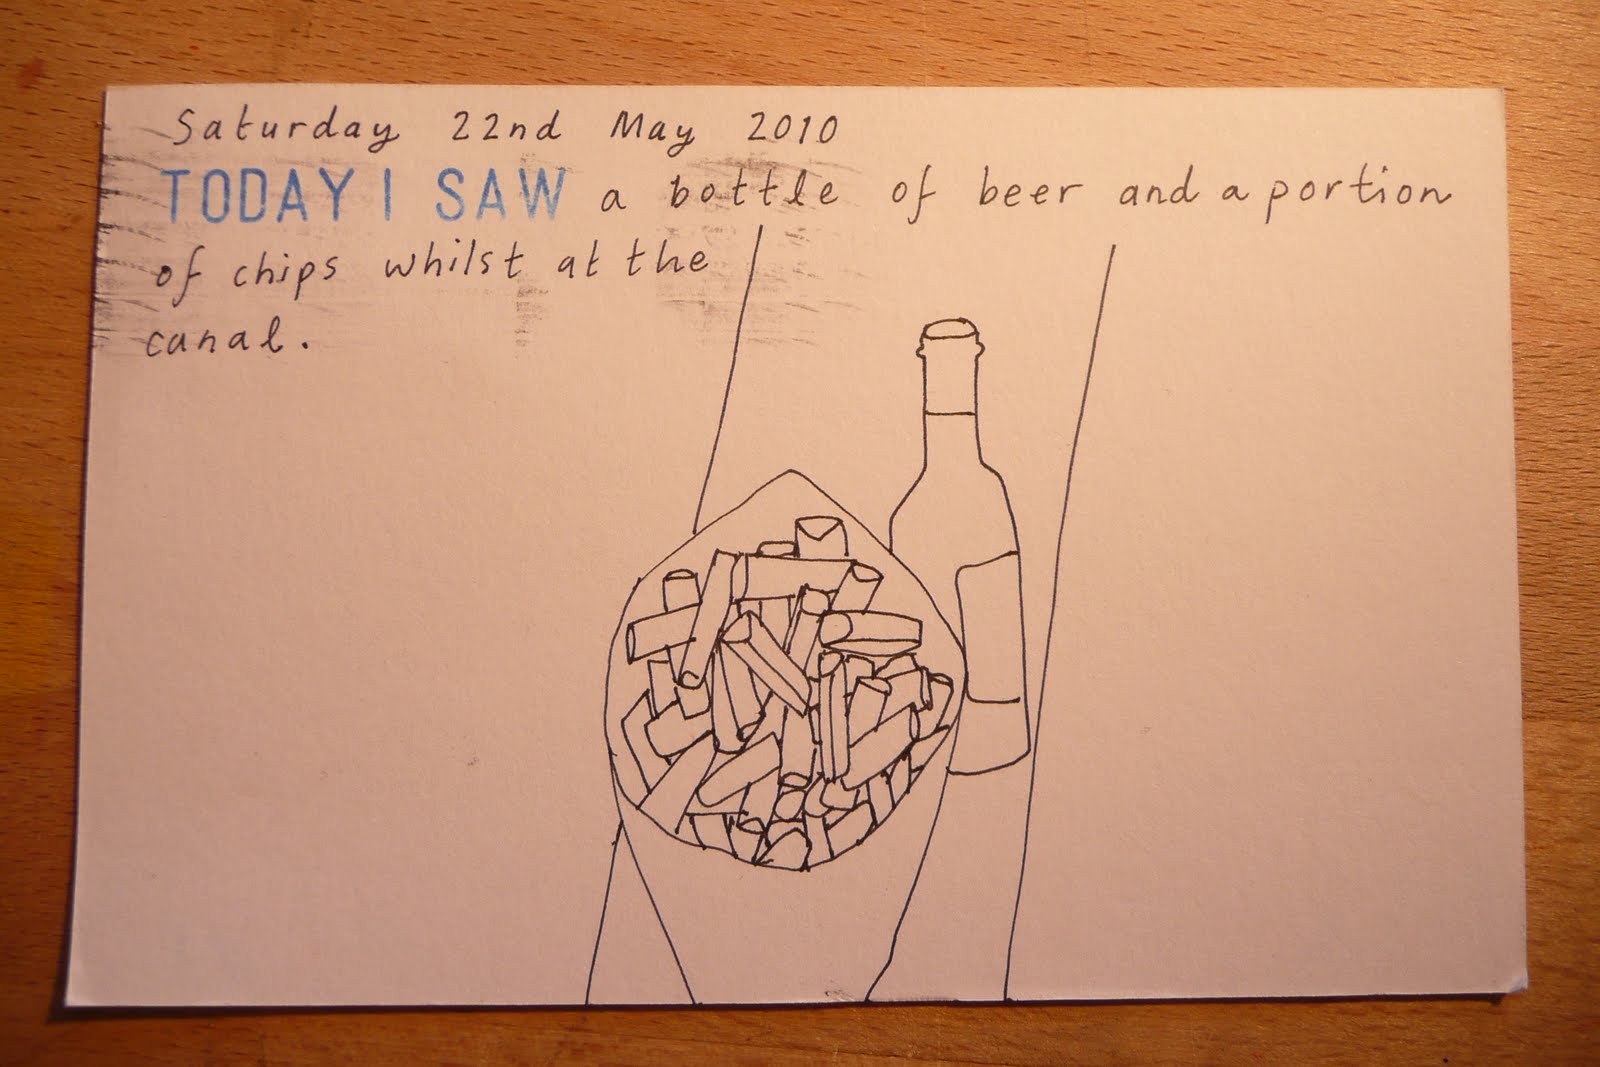 Saturday 22nd May 2010
TODAY I SAW a bottle of beer and a portion
of chips whilst at the
canal.